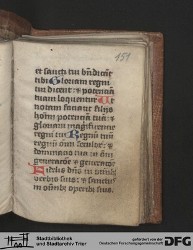 151
et sancti tui bndicāt
tibi Gloriam regni
tui dicent: et potentiā
tuam loquentur Ut
notam faciant filijs
hoīm potentiā tuā: et
gloriam magnificencie
regni tui Regnū tuū
regnū oīm seculor: et
dominatio tua in oīn
generatōe et generatōem
Fidelis dūs in oīnibꝰ
verbis suis: et sanctus
in oīnibꝰ operibꝰ suis
Stadtbibliothek
und Stadtarchiv Trier
gefördert von der
DFG
Deutschen Forschungsgemeinschaft